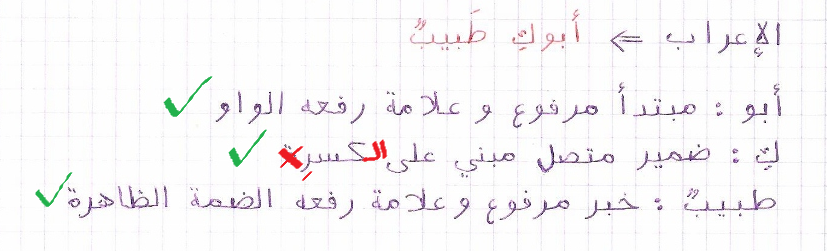 الإعراب ⇐ أبوكِ طَبيبٌ
أبو : مبتدأ مرفوع و علامة رفعه الواو ✓
كِ : ضمير متصل مبني على الكسرِ ✓
طبيبٌ : خبر مرفوع و علامة رفعه الضمة الظاهرة ✓